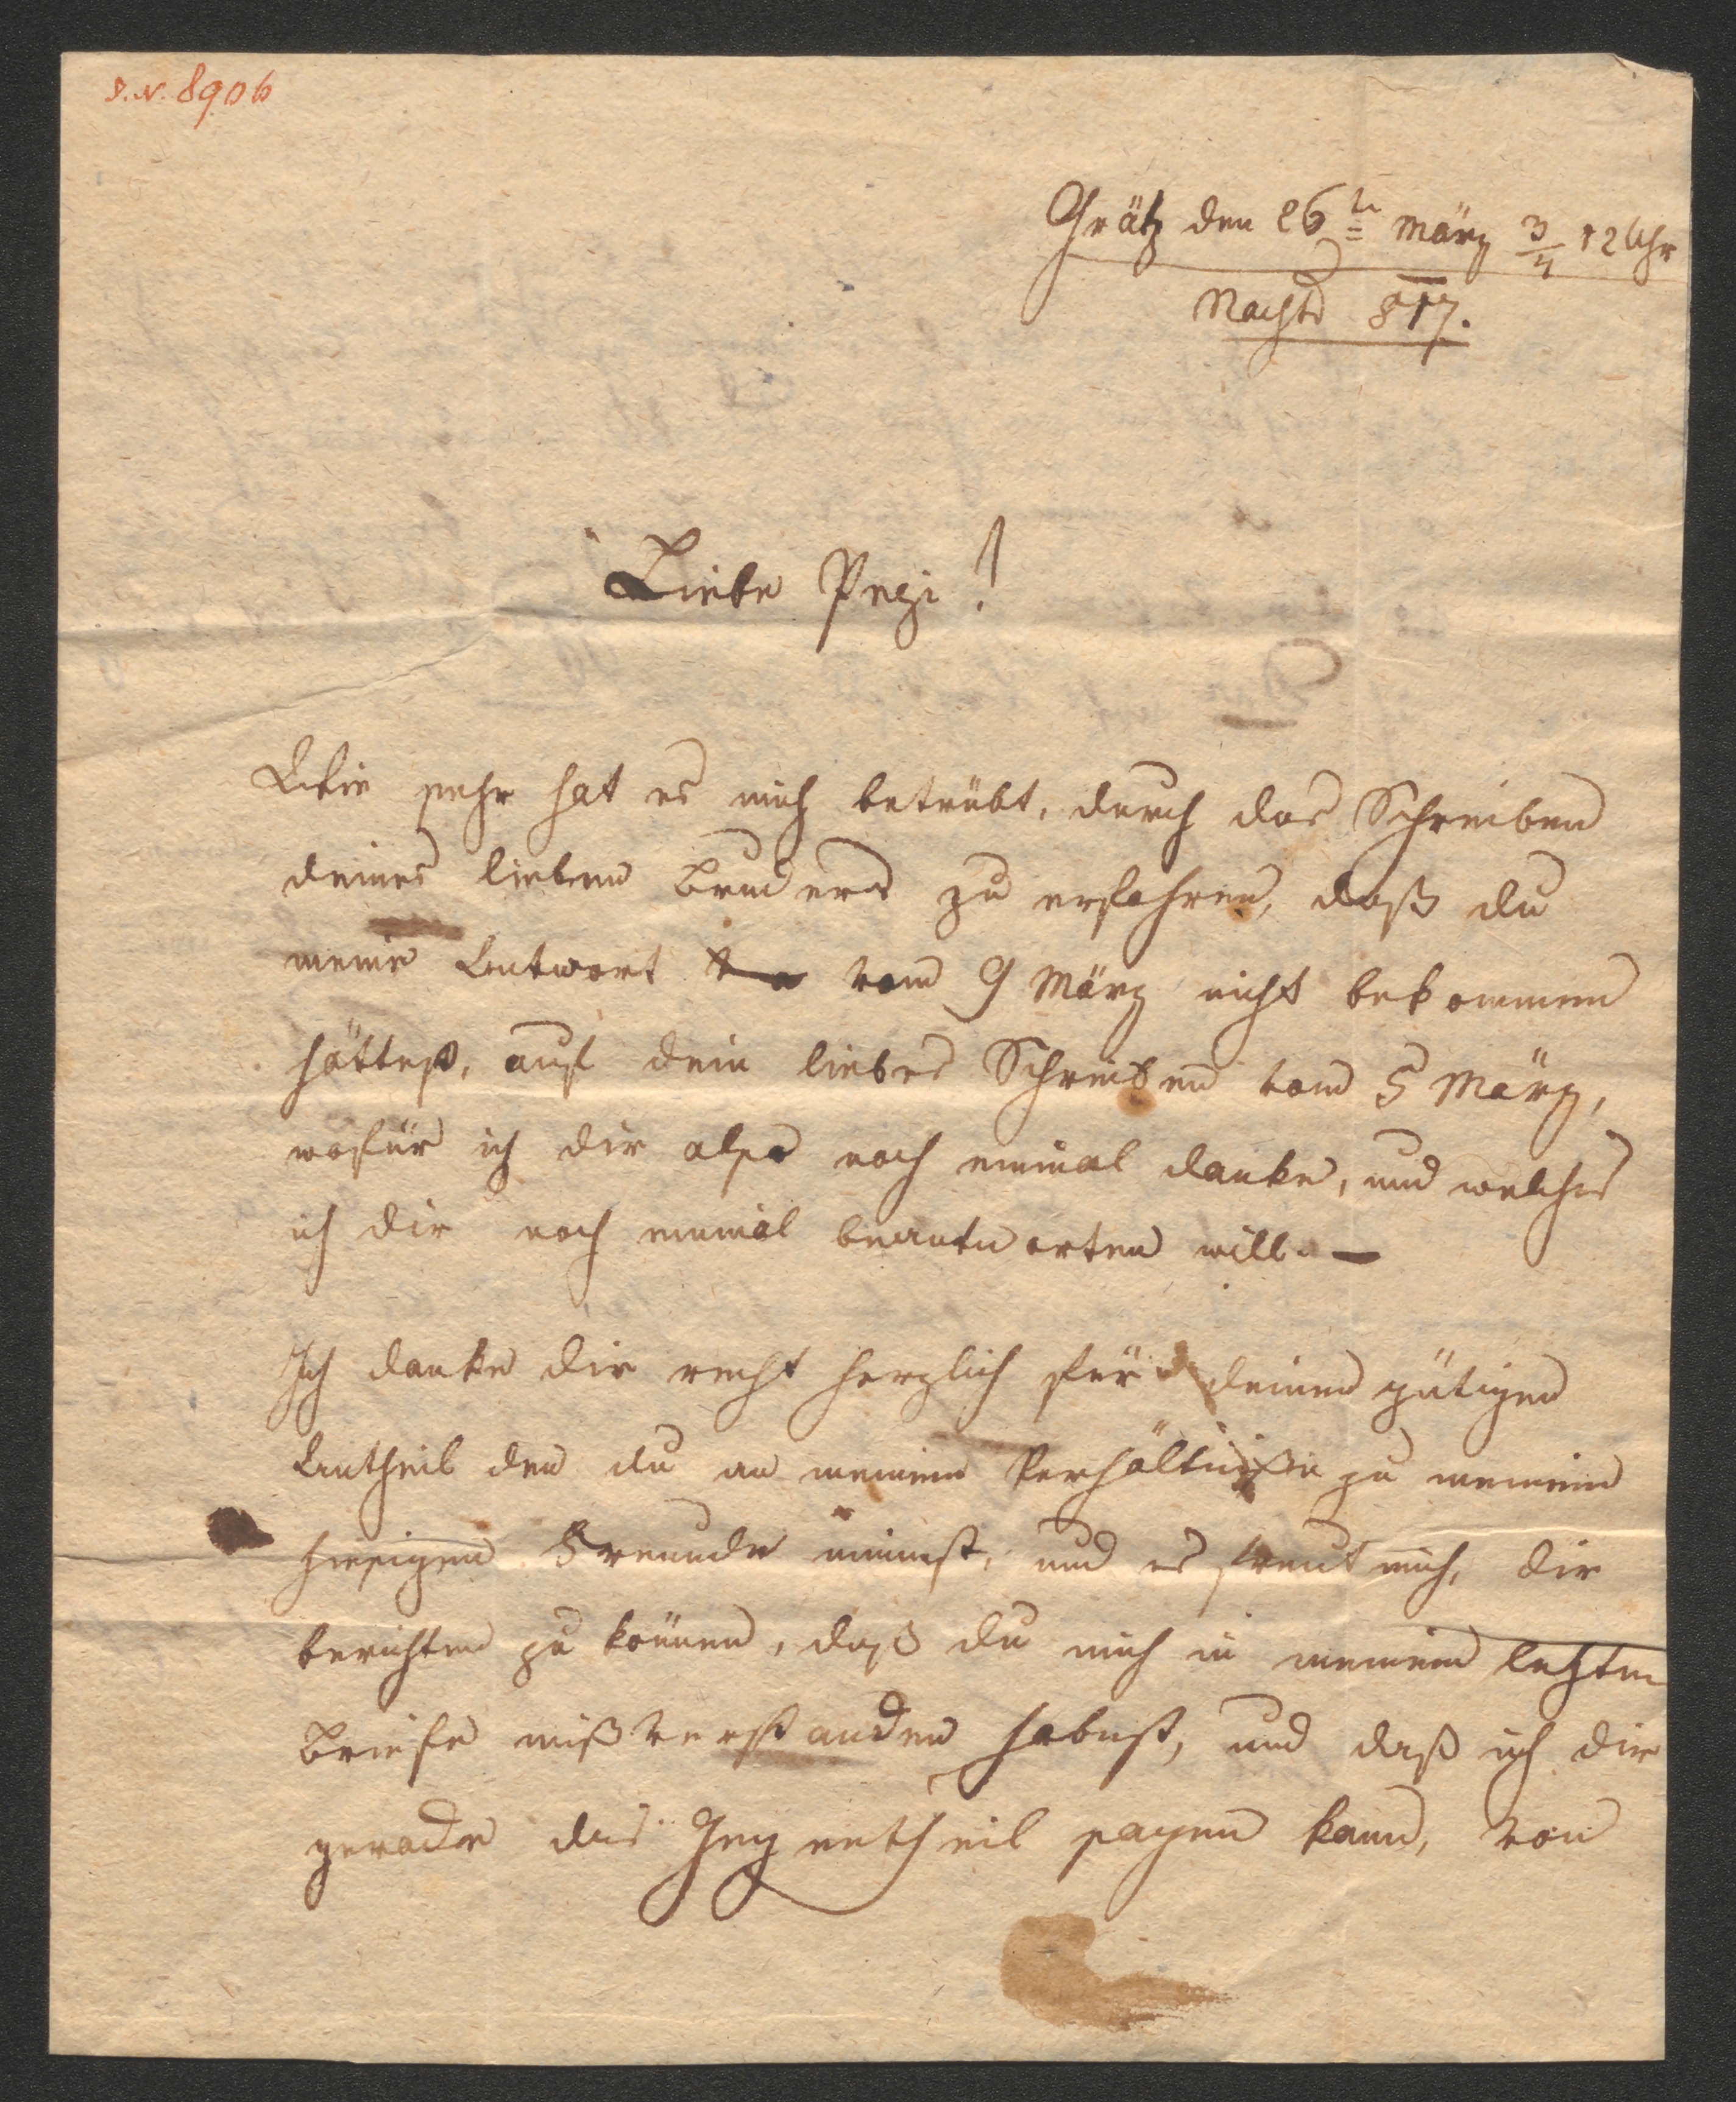 I.N. 8906
Grätz den 26ten März 3/4 12 Uhr
Nachts 817.
Liebe Pezi!
Wie sehr hat es mich betrübt, durch das Schreiben
deines lieben Bruders zu erfahren, daß du
meine Antwort vom 9 März nicht bekommen
hättest, auf dein liebes Schreiben vom 5 März,
wofür ich dir also noch einmal danke, und welches
ich dir noch einmal beantworten will. —
Ich danke dir recht herzlich für deinen gütigen
Antheil den du an meinem Verhältniße zu meinem
hiesigen Freunde nimmst, und es freut mich, dir
berichten zu können, daß du mich in meinem letzten
Briefe mißverstanden habest, und daß ich dir
gerade das Gegentheil sagen kann, von